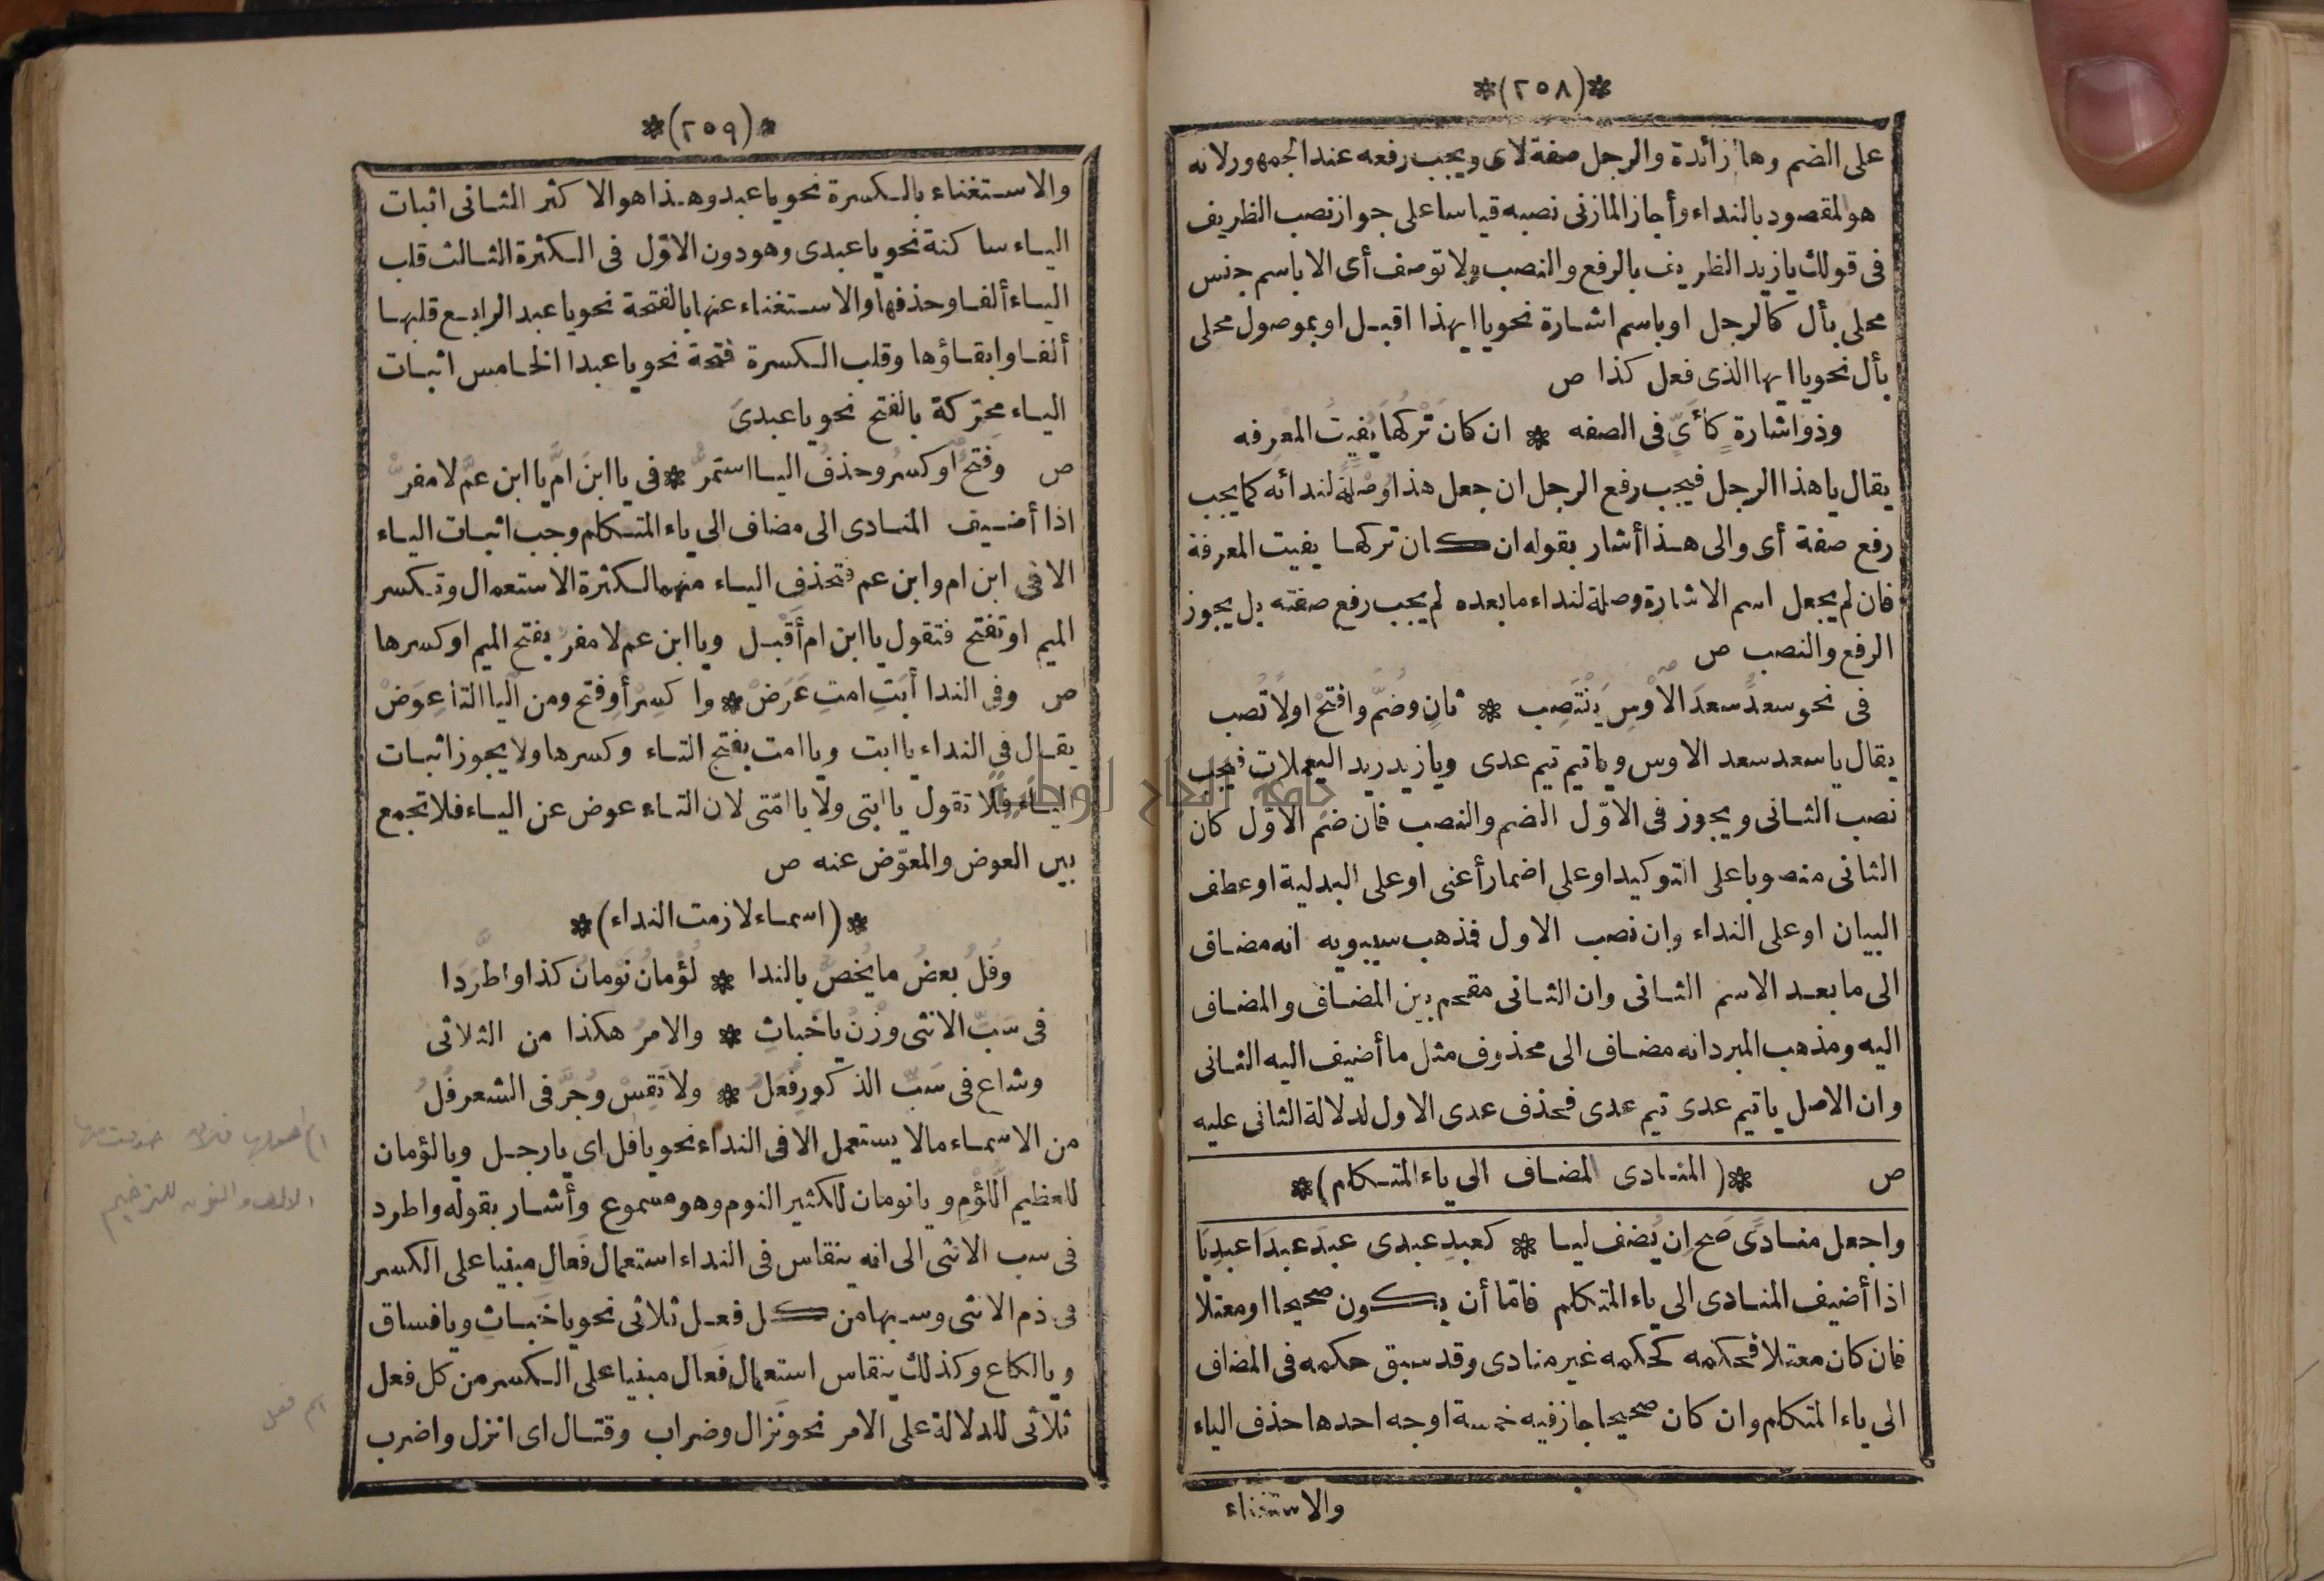 *(٢٥٨)*
على الضم وها زائدة والرجل صفة لاى ويجب رفعه عند الجمهور لانه
هو المقصود بالنداء وأجاز المازنى نصبه قياسا على جواز نصب الظريف
فى قولك يازيد الظريف بالرفع والنصب ولا توصف أى الا باسم جنس
محلى بأل كالرجل او باسم اشارة نحو يا ايهذا اقبل او بموصول محلى
بأل نحو يا ايها الذى فعل كذا ص
وذو اشارةٍ كأَىٍّ فى الصفه * ان كان تَرْكُها يُفيتُ المعرفه
يقال يا هذا الرجل فيجب رفع الرجل ان جعل هذا وُصْلَةً لندائه كما يجب
رفع صفة أى والى هذا أشار بقوله ان كان تركها يفيت المعرفة
فان لم يجعل اسم الاشارة وصلة لنداء ما بعده لم يجب رفع صفته بل يجوز
الرفع والنصب ص
فى نحو سعدُ سعدَ الاَوْسِ يَنْتَصِب * ثانٍ وضُمَّ وافتحْ اولاً تُصب
يقال يا سعد سعد الاوس ويا تيم تيم عدى ويا زيد زيد اليعملات فيجب
نصب الثانى ويجوز فى الاوّل الضم والنصب فان ضم الاوّل كان
الثانى منصوبا على التوكيد او على اضمار أعنى او على البدلية او عطف
البيان او على النداء وان نصب الاول فمذهب سيبويه انه مضاف
الى ما بعد الاسم الثانى وان الثانى مقحم بين المضاف والمضاف
اليه ومذهب المبرد انه مضاف الى محذوف مثل ما أضيف اليه الثانى
وان الاصل يا تيم عدى تيم عدى فحذف عدى الاول لدلالة الثانى عليه
ص *(المنادى المضاف الى ياء المتكلم)*
واجعل منادًى صَح اِن يُضف ليا * كعبدِ عبدى عبدَ عبدَا عبدِيَا
اذا أضيف المنادى الى ياء المتكلم فامّا أن يكون صحيحا او معتلا
فان كان معتلا فحكمه كحكمه غير منادى وقد سبق حكمه فى المضاف
الى ياء المتكلم وان كان صحيحا جاز فيه خمسة اوجه احدها حذف الياء
والاستغناء
*(٢٥٩)*
والاستغناء بالكسرة نحو يا عبد وهذا هو الا كثر الثانى اثبات
الياء ساكنة نحو يا عبدى وهو دون الاوّل فى الكثرة الثالث قلب
الياء ألفا وحذفها والاستغناء عنها بالفتحة نحو يا عبد الرابع قلبها
ألفا وابقاؤها وقلب الكسرة فتحة نحو يا عبدا الخامس اثبات
الياء محتركة بالفتح نحو يا عبدىَ
ص وفتحٌ او كسرٌ وحذفُ اليا استمرّ * فى يا ابنَ امَّ يا ابن عمَّ لا مفرّْ
اذا أضيف المنادى الى مضاف الى ياء المتكلم وجب اثبات الياء
الا فى ابن ام وابن عم فتحذف الياء منهما لكثرة الاستعمال وتكسر
الميم او تفتح فتقول يا ابن ام أقبل ويا ابن عم لا مفرّ بفتح الميم او كسرها
ص وفى الندا أبَتِ امتِ عَرَضْ * واكسِرْ أو فتح ومن اليا التا عِوَضْ
يقال فى النداء يا ابت ويا امت بفتح التاء وكسرها ولا يجوز اثبات
الياء فلا تقول يا ابتى ولا يا امّتى لان التاء عوض عن الياء فلا تجمع
بين العوض والمعوّض عنه ص
*(اسماء لازمت النداء)*
وفُلُ بعضُ ما يُخصّ بالندا * لُؤْمانُ نَومانُ كذا واطَّرَدا
فى سَبِّ الانثى وزْنُ ياخَباثِ * والامرُ هكذا من الثلاثى
وشاع فى سَبِّ الذكورِ فُعَلُ * ولا تَقِسْ وجُرَّ فى الشعر فُلُ
من الاسماء مالا يستعمل الا فى النداء نحو يا فل اى يا رجل ويا لؤمان
للعظيم اللؤم ويا نومان للكثير النوم وهو مسموع وأشار بقوله واطرد
فى سب الانثى الى انه ينقاس فى النداء استعمال فَعالِ مبنيا على الكسر
فى ذم الانثى وسبها من كل فعل ثلاثى نحو يا خَباثِ ويا فساق
ويا لكاع وكذلك ينقاس استعمال فَعال مبنيا على الكسر من كل فعل
ثلاثى للدلالة على الامر نحو نَزال وضراب وقتال اى انزل واضرب
الالف والنون للترخيم
اسم فعل
جامعة النجاح الوطنية